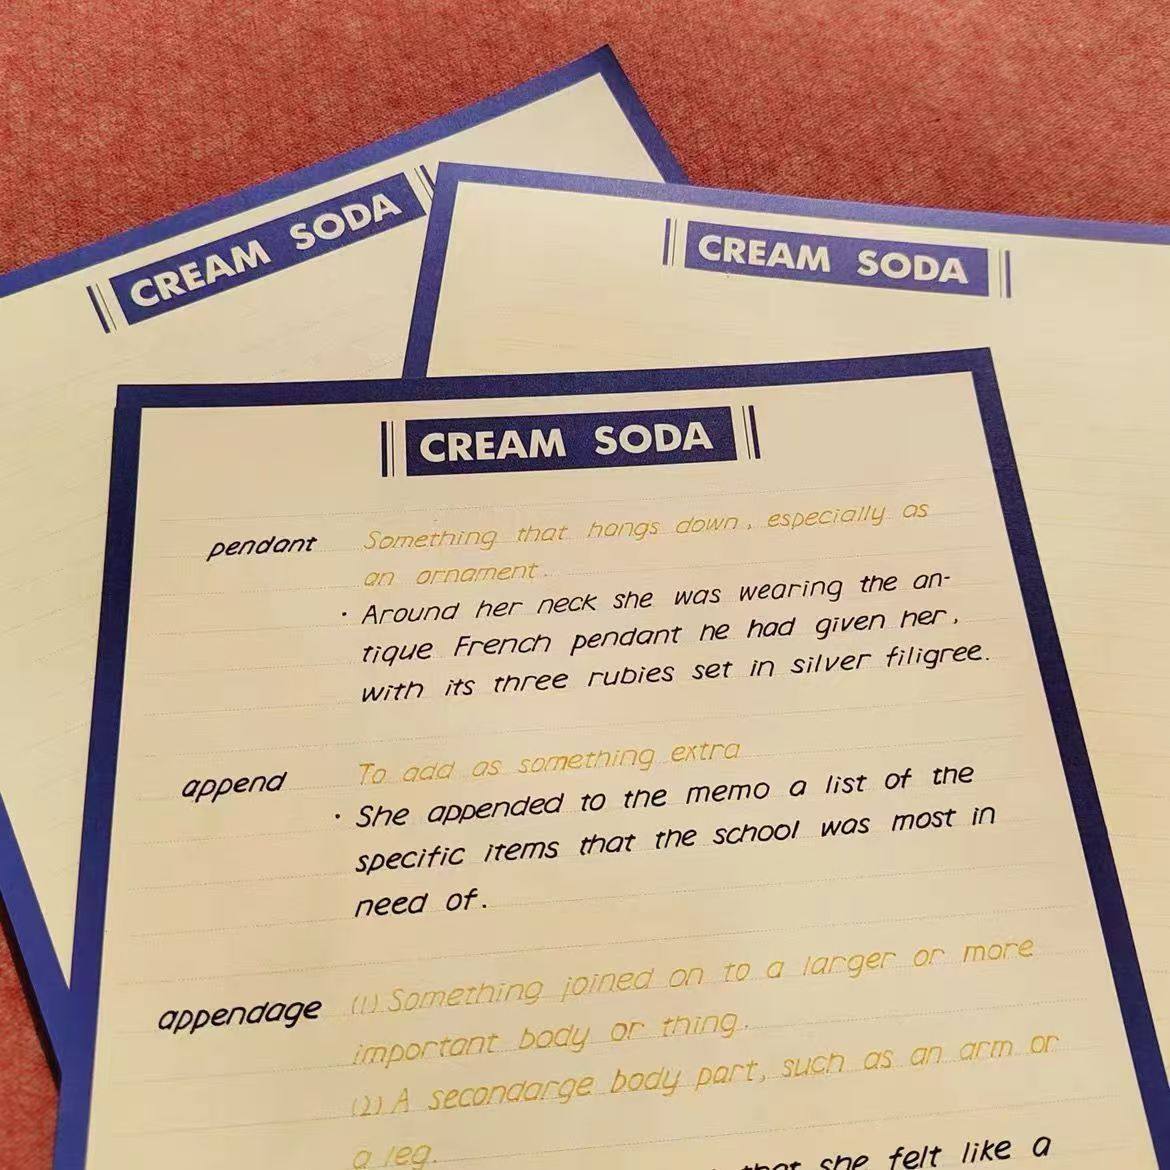 CREAM SODA
CREAM SODA
CREAM SODA
pendant Something that hangs down, especially as
an ornament.
· Around her neck she was wearing the an-
tique French pendant he had given her,
with its three rubies set in silver filigree.
append To add as something extra
· She appended to the memo a list of the
specific items that the school was most in
need of.
appendage (1) Something joined on to a larger or more
important body or thing.
(2) A secondarge body part, such as an arm or
a leg.
that she felt like a